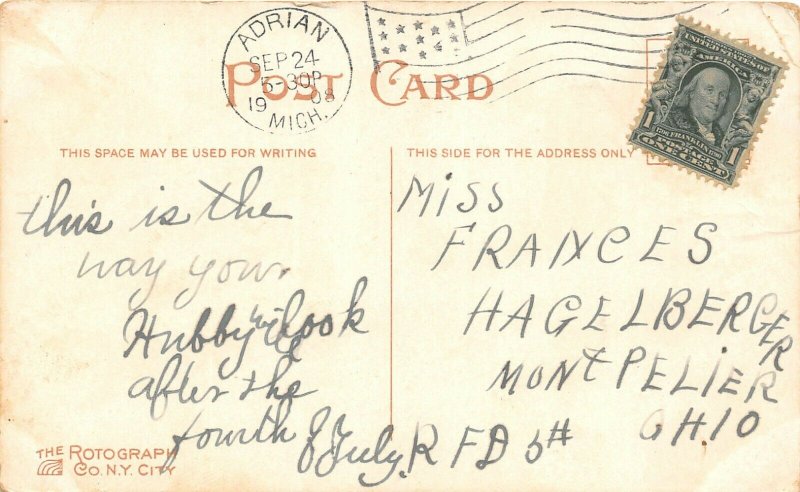 ADRIAN
SEP 24
5-30P
1908
MICH.
POST CARD
UNITED STATES OF
AMERICA
1706 FRANKLIN 1790
1 POSTAGE 1
ONE CENT
THIS SPACE MAY BE USED FOR WRITING
THIS SIDE FOR THE ADDRESS ONLY
this is the
way your
Hubby will look
after the
fourth of July.
MISS
FRANCES
HAGELBERGER
MONTPELIER
OHIO
R FD 5#
THE ROTOGRAPH
CO. N.Y. CITY